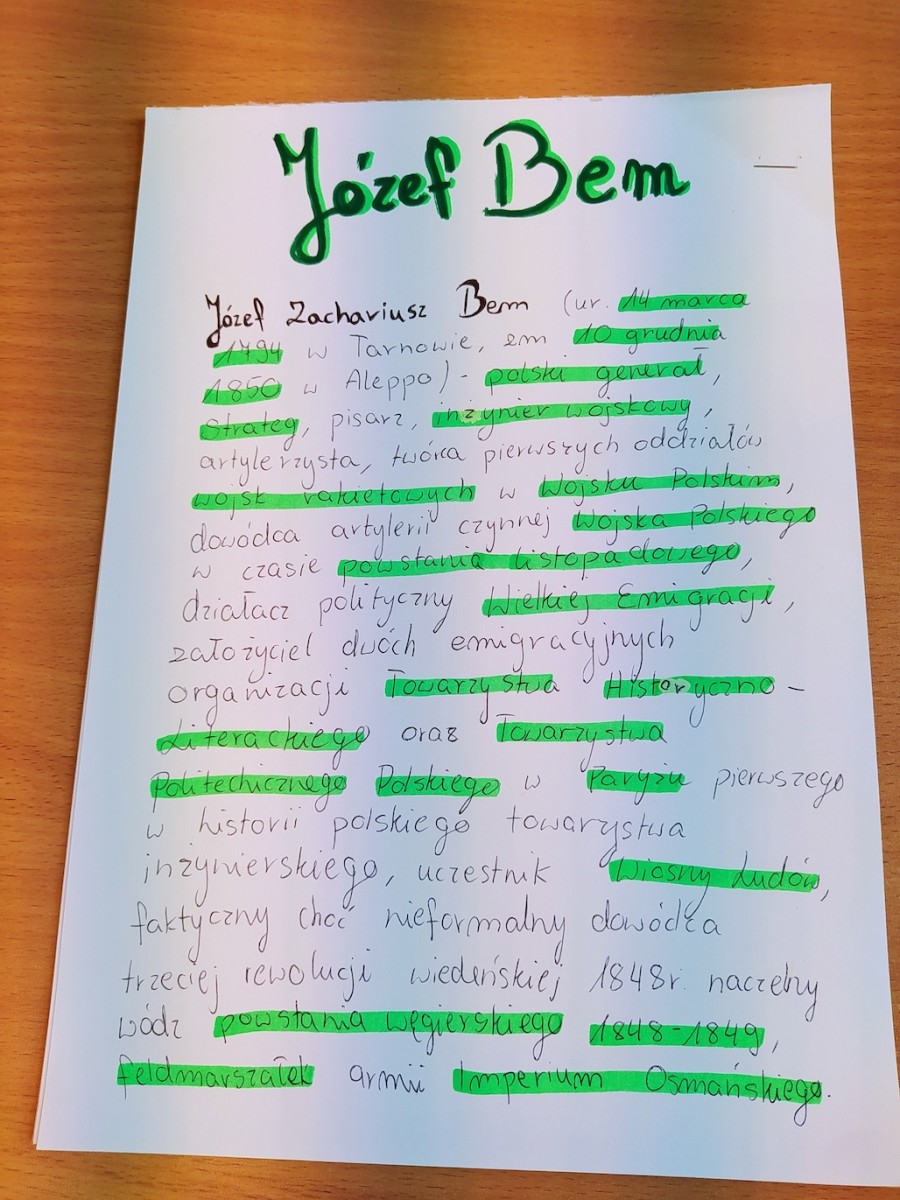 Józef Bem
Józef Zachariusz Bem (ur. 14 marca
1794 w Tarnowie, zm 10 grudnia
1850 w Aleppo) - polski generał,
Strateg, pisarz, inżynier wojskowy,
artylerzysta, twórca pierwszych oddziałów
wojsk rakietowych w Wojsku Polskim,
dowódca artylerii czynnej Wojska Polskiego
w czasie powstania Listopadowego,
działacz polityczny Wielkiej Emigracji,
założyciel dwóch emigracyjnych
organizacji Towarzystwa Historyczno-
Literackiego oraz Towarzystwa
Politechnicznego Polskiego w Paryżu pierwszego
w historii polskiego towarzystwa
inżynierskiego, uczestnik Wiosny Ludów,
faktyczny choć nieformalny dowódca
trzeciej rewolucji wiedeńskiej 1848r. naczelny
wódz powstania węgierskiego 1848-1849,
feldmarszałek armii Imperium Osmańskiego.